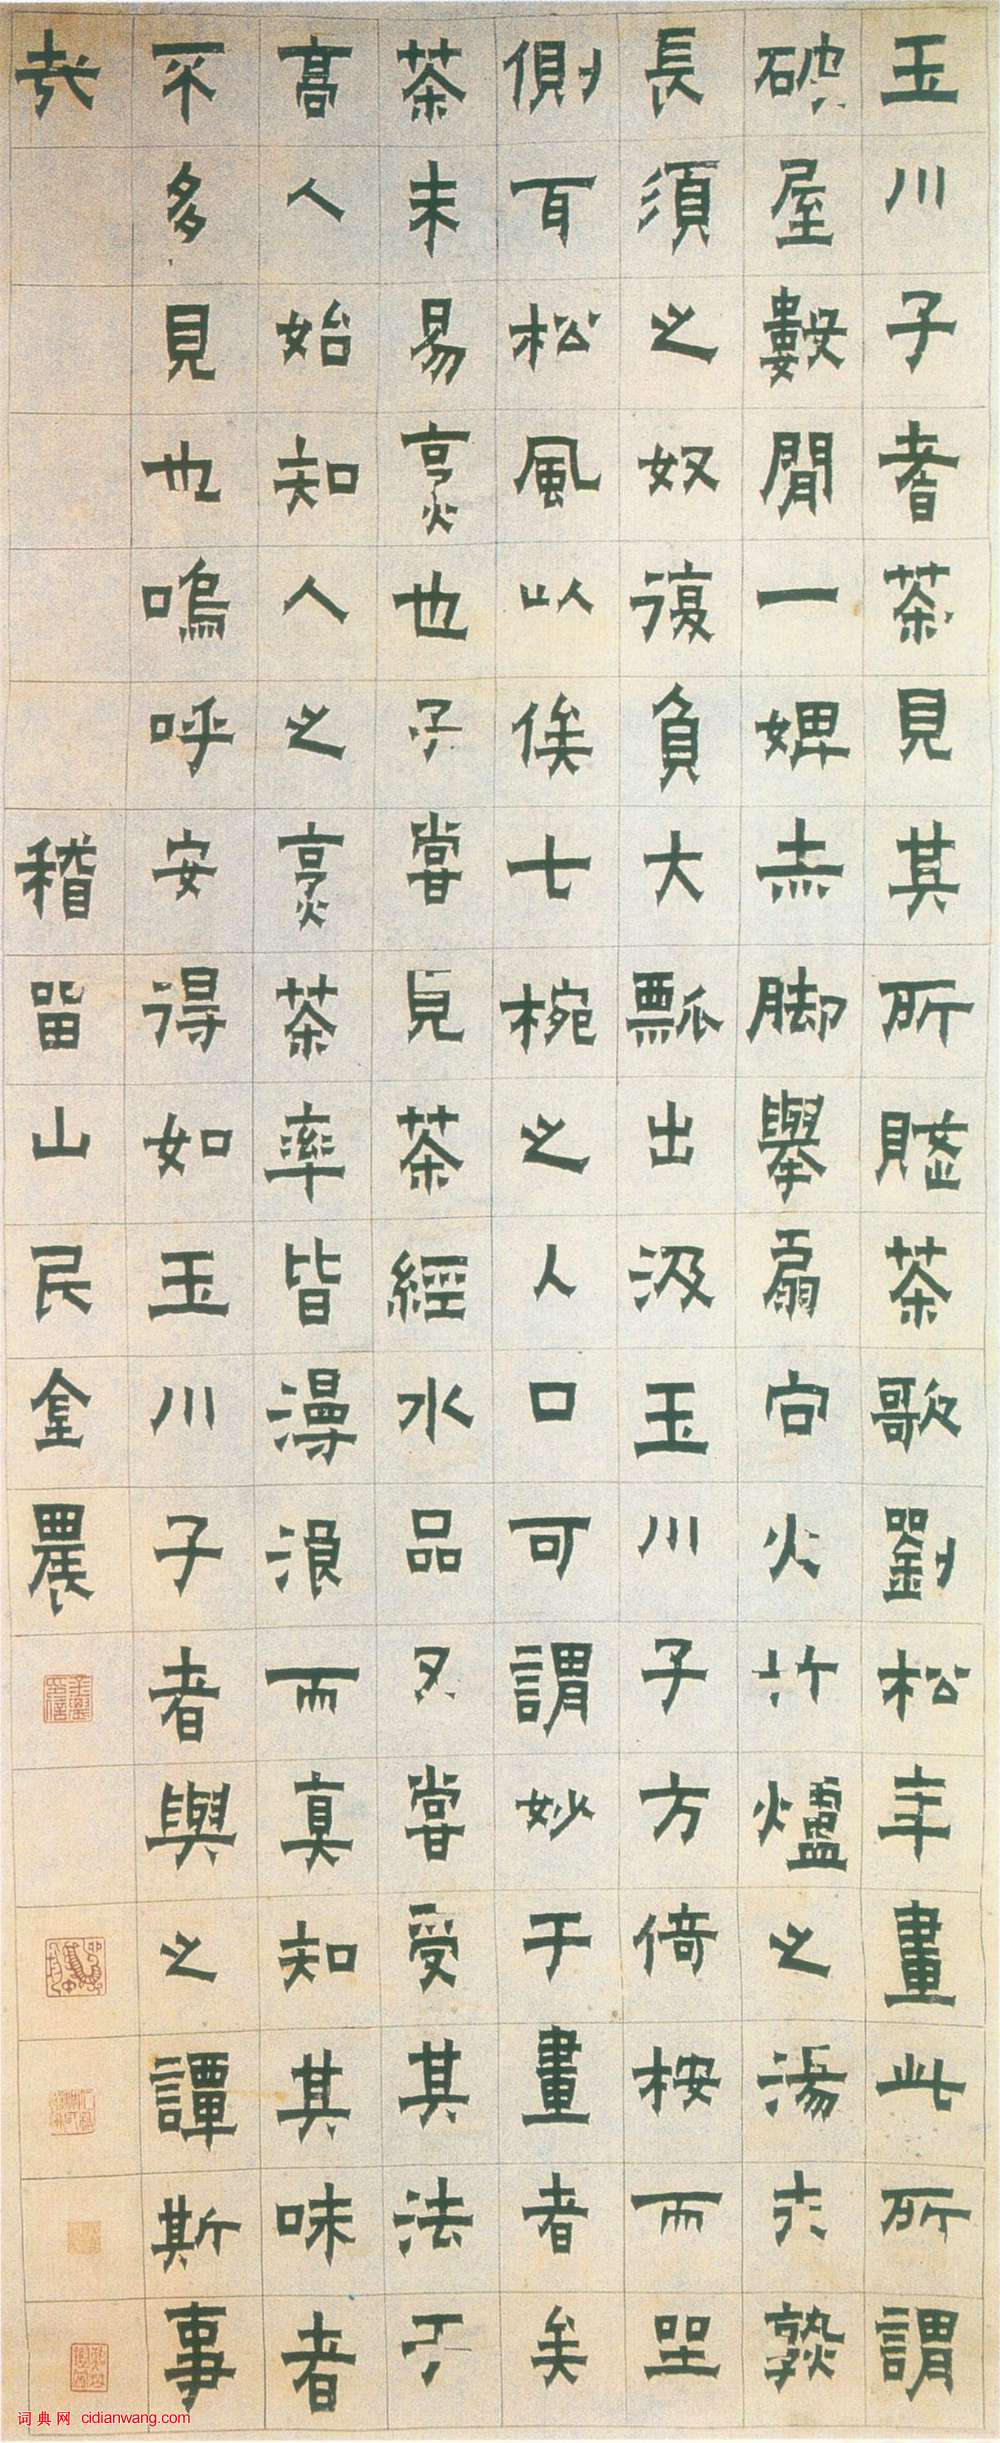 玉川子耆茶見其所賦茶歌劉松年畫此所謂
破屋數閒一婢赤脚舉扇向火竹爐之湯未熟
長須之奴復負大瓢出汲玉川子方倚桉而坐
側耳松風以俟七椀之入口可謂妙于畫者矣
茶未易烹也予嘗見茶經水品又嘗受其法于
高人始知人之烹茶率皆漫浪而真知其味者
不多見也嗚呼安得如玉川子者與之譚斯事
哉 稽留山民金農
词典网 cidianwang.com